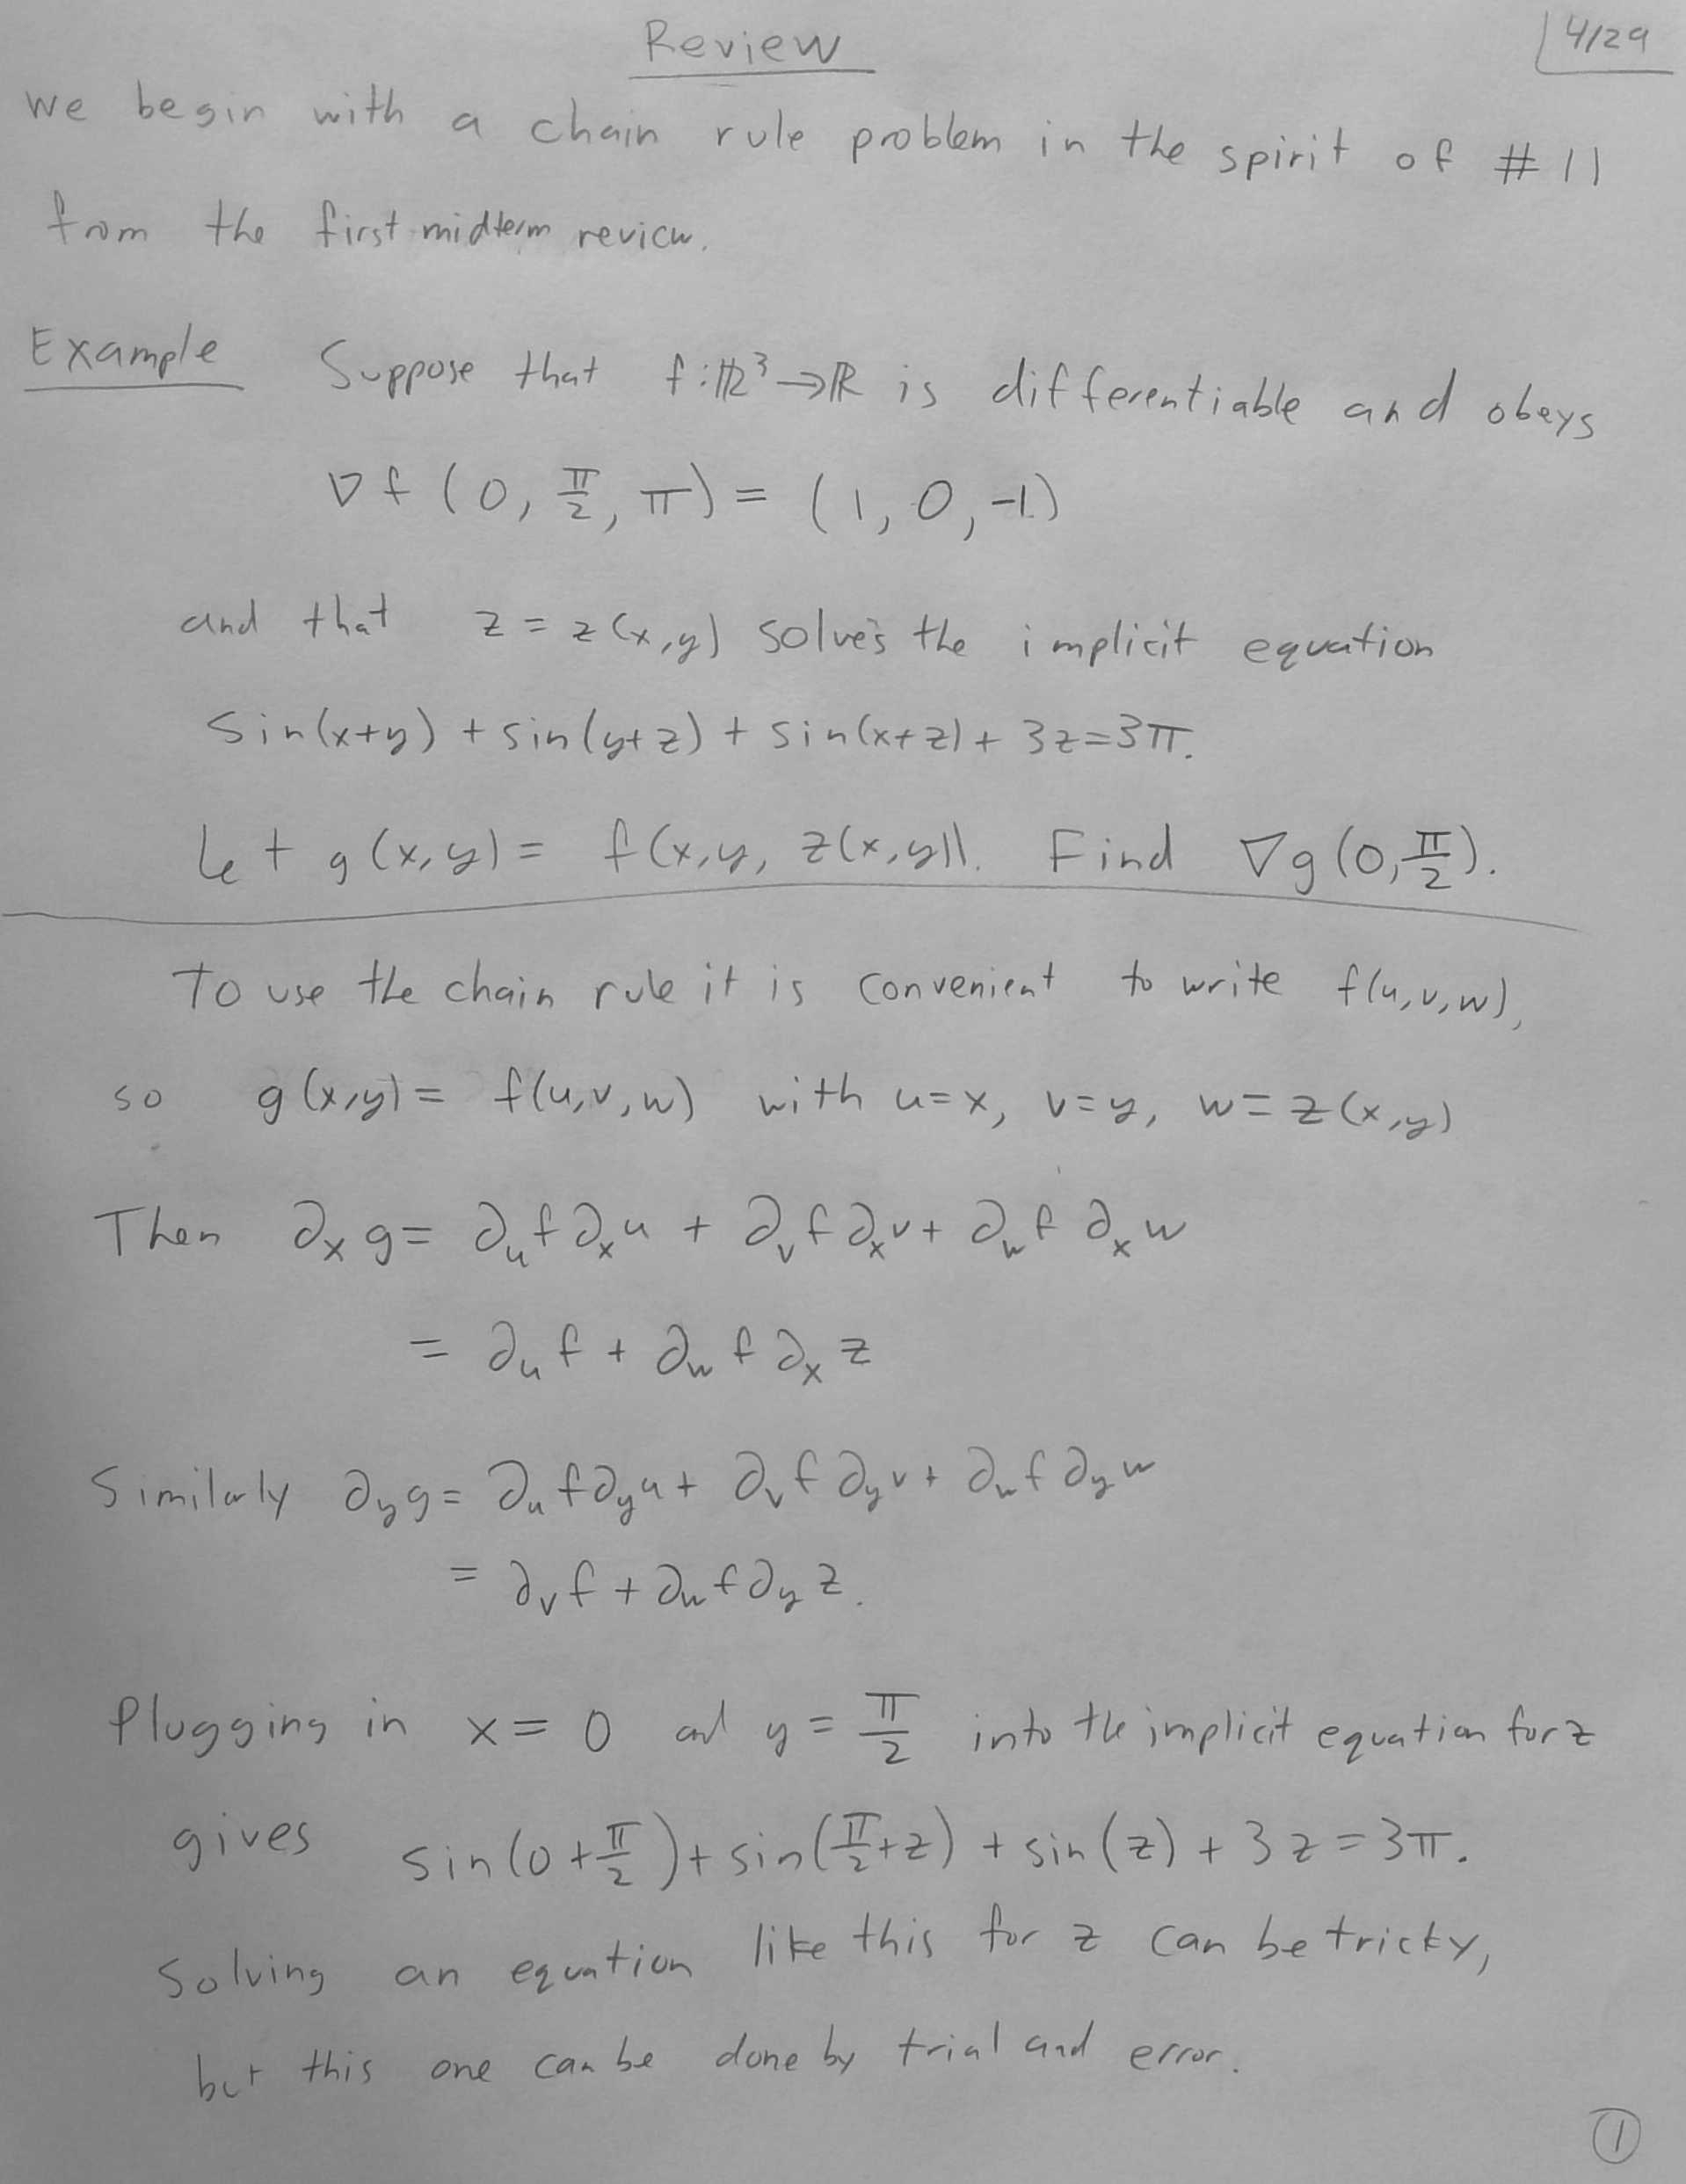 Review
4/29
We begin with a chain rule problem in the spirit of #11
from the first midterm review.
Example Suppose that f:ℝ³→ℝ is differentiable and obeys
∇f(0, π/2, π) = (1, 0, -1)
and that z = z(x,y) solves the implicit equation
sin(x+y) + sin(y+z) + sin(x+z) + 3z = 3π.
Let g(x,y) = f(x,y, z(x,y)). Find ∇g(0, π/2).
To use the chain rule it is convenient to write f(u,v,w),
so g(x,y) = f(u,v,w) with u=x, v=y, w= z(x,y)
Then ∂ₓg = ∂ᵤf ∂ₓu + ∂ᵥf ∂ₓv + ∂_w f ∂ₓw
= ∂ᵤf + ∂_w f ∂ₓz
Similarly ∂_y g = ∂ᵤf ∂_y u + ∂ᵥf ∂_y v + ∂_w f ∂_y w
= ∂ᵥf + ∂_w f ∂_y z.
Plugging in x = 0 and y = π/2 into the implicit equation for z
gives sin(0+π/2) + sin(π/2+z) + sin(z) + 3z = 3π.
Solving an equation like this for z can be tricky,
but this one can be done by trial and error.
1